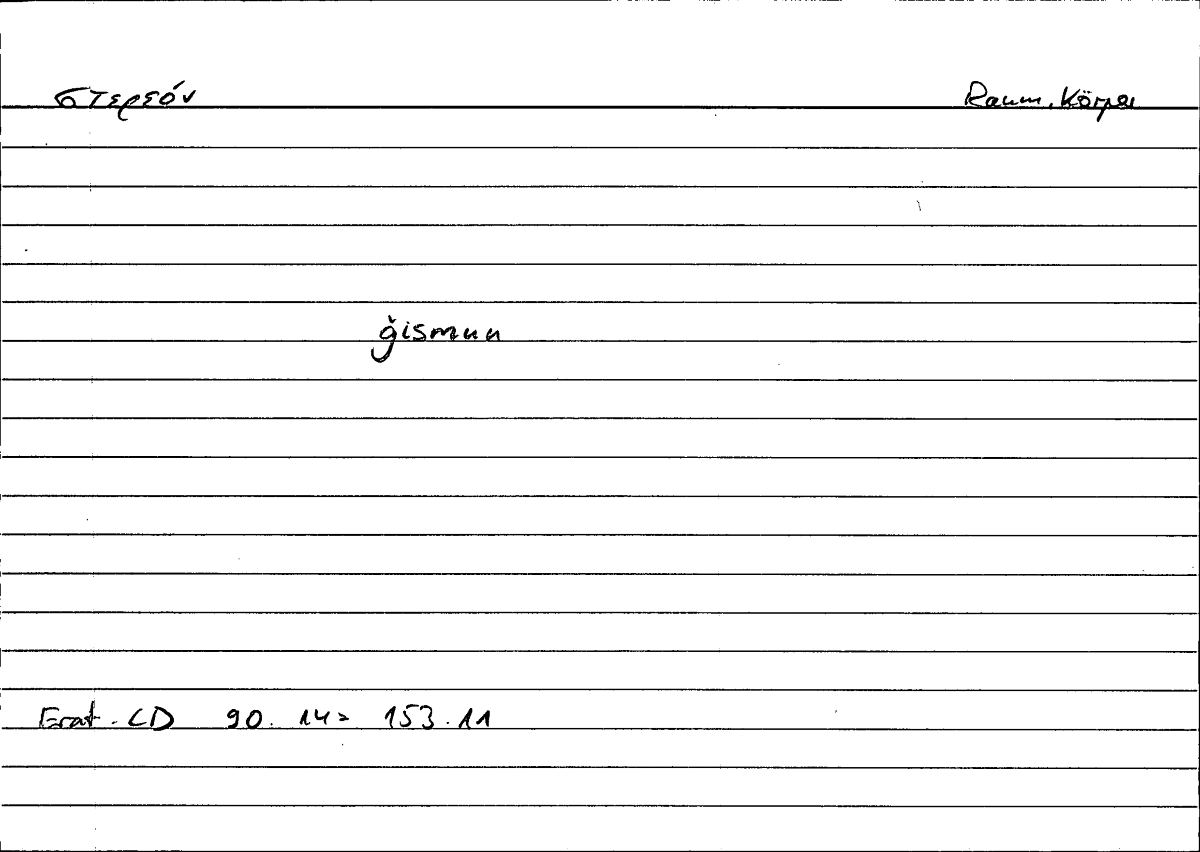 στερεόν Raum, Körper
ǧismun
Erat. CD 90. 14 = 153.11